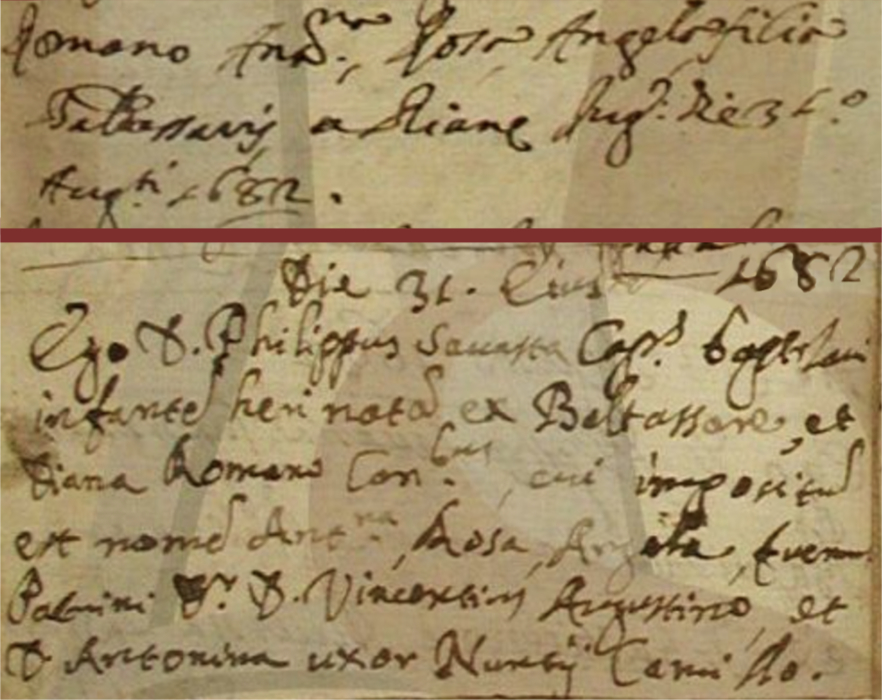 Romano Ant.na, Rosa, Angela filia
Baltassaris et Diane Jug. die 31.o
Aug.ti 1682.
Die 31. Eiusd 1682
Ego D. Philippus Capp.s baptizavi
infante heri nata ex Baltassare, et
Diana Romano Con.bus, cui impositu
est nome Ant.na, Rosa, Angela, fuerunt
Patrini D. Vincentius Augustino, et
D. Antonina uxor Nuntij Camillo.